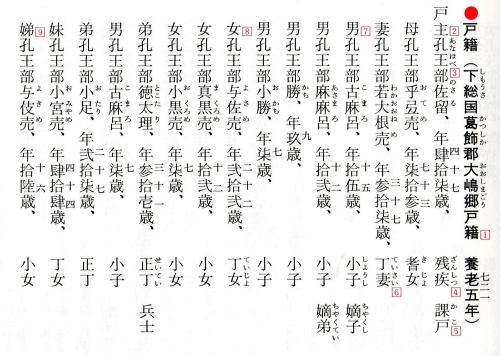 ●戸籍(下総国葛飾郡大嶋郷戸籍 1 養老五年)
戸2主孔王部3佐留、年肆拾柒歳、 残疾4 課戸5
母孔王部乎弖売、年柒拾参歳、 耆女
妻孔王部若大根売、年参拾柒歳、 丁妻6
男7孔王部古麻呂、年拾伍歳、 小子 嫡子
男孔王部麻麻呂、年拾弐歳、 小子 嫡弟
男孔王部勝、年玖歳、 小子
男孔王部小勝、年柒歳、 小子
女8孔王部与佐売、年弐拾弐歳、 丁女
女孔王部真黒売、年拾弐歳、 小女
女孔王部小黒売、年柒歳、 小女
弟孔王部徳太理、年参拾壱歳、 正丁 兵士
男孔王部古麻呂、年柒歳、 小子
弟孔王部小足、年弐拾柒歳、 正丁
妹孔王部小宮売、年肆拾肆歳、 丁女
娣9孔王部与伎売、年拾陸歳、 小女